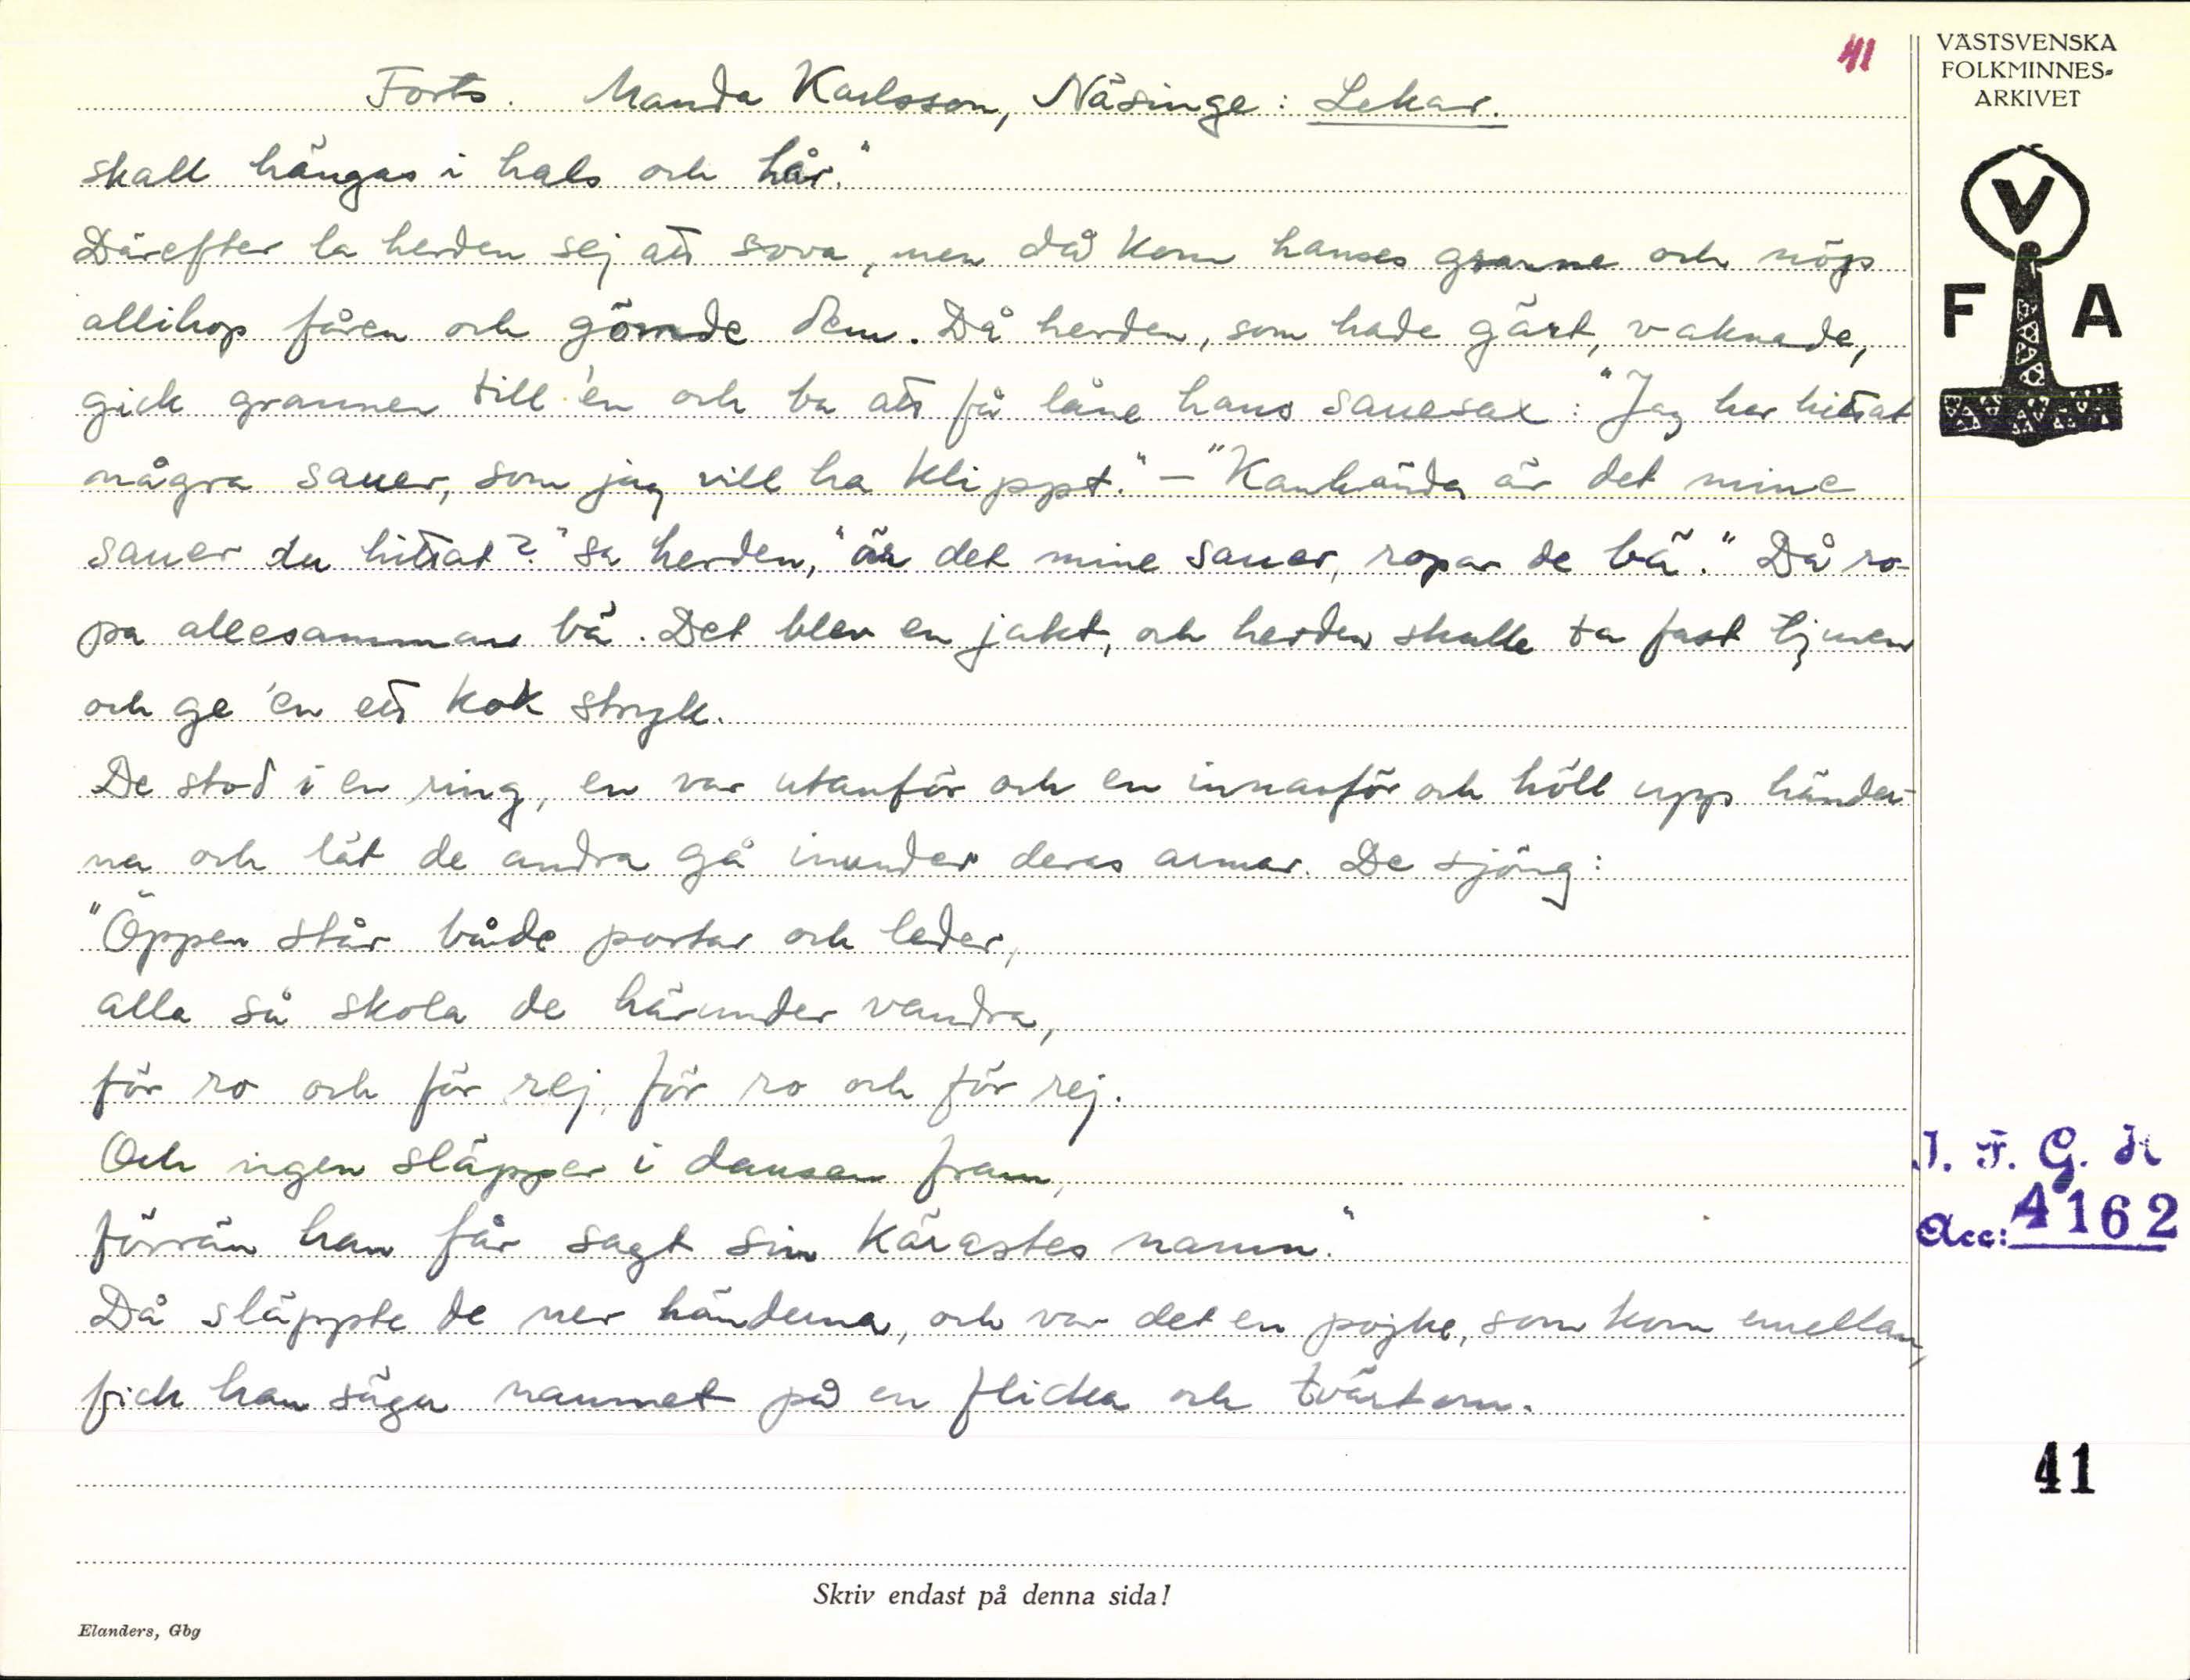 41
VÄSTSVENSKA
FOLKMINNES-
ARKIVET
V
F A
Forts. Manda Karlsson, Näsinge: Lekar.
skall hängas i hals och hår."
Därefter la herden sej att sova, men då kom hanses granne och nöp
allihop fåren och gömde dem. Då herden, som hade gärt, vaknade,
gick grannen till 'en och ba att få låne hans sauesax: "Jag har hittat
några sauer, som jag vill ha klippt." – "Kanhända är det mine
sauer du hittat?" sa herden, "är det mine sauer, ropar de bä." Då ro-
pa allesammans bä. Det blev en jakt, och herden skulle ta fast tjuven
och ge 'en ett kok stryk.
De stod i en ring, en var utanför och en innanför och höll upp händer-
na och lät de andra gå inunder deras armar. De sjöng:
"Öppen står både portar och leder,
alla så skola de härunder vandra,
för ro och för rej, för ro och för rej.
Och ingen släpper i dansen fram,
förrän han får sagt sin kärastes namn."
Då släppte de ner händerna, och var det en pojke, som kom emellan,
fick han säga namnet på en flicka och tvärtom.
I. F. G. H
Acc: 4162
41
Skriv endast på denna sida!
Elanders, Gbg